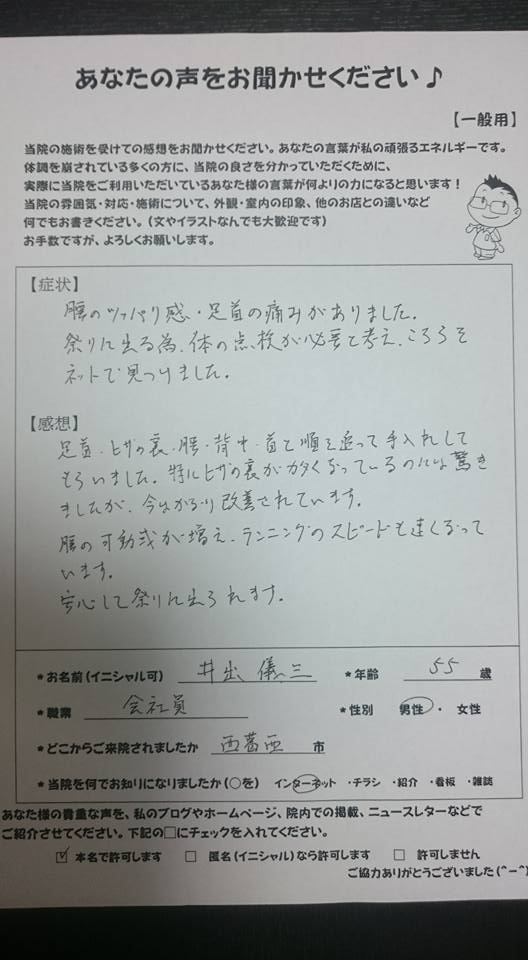 あなたの声をお聞かせください♪
【一般用】
当院の施術を受けての感想をお聞かせください。あなたの言葉が私の頑張るエネルギーです。
体調を崩されている多くの方に、当院の良さを分かっていただくために、
実際に当院をご利用いただいているあなた様の言葉が何よりの力になると思います！
当院の雰囲気・対応・施術について、外観・室内の印象、他のお店との違いなど
何でもお書きください。（文やイラストなんでも大歓迎です）
お手数ですが、よろしくお願いします。
【症状】
腰のツッパリ感・足首の痛みがありました。
祭りに出る為、体の点検が必要と考え、こころそ
ネットで見つけました。
【感想】
足首・ヒザの裏・腰・背中・首と順を追って手入れして
もらいました。特にヒザの裏がカタくなっているのには驚き
ましたが、今はかなり改善されています。
腰の可動域が増え、ランニングのスピードも速くなって
います。
安心して祭りに出られます。
*お名前（イニシャル可） 井出 儀三 *年齢 55 歳
*職業 会社員 *性別 男性 ・ 女性
*どこからご来院されましたか 西葛西 市
*当院を何でお知りになりましたか（○を） インターネット ・チラシ ・紹介 ・看板 ・雑誌
あなた様の貴重な声を、私のブログやホームページ、院内での掲載、ニュースレターなどで
ご紹介させてください。下記の□にチェックを入れてください。
☑ 本名で許可します □ 匿名（イニシャル）なら許可します □ 許可しません
ご協力ありがとうございました（^－^）